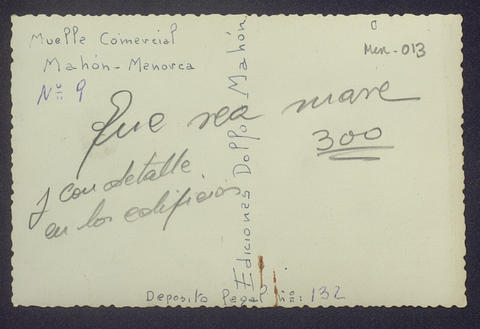 Muelle Comercial
Mahón-Menorca
Nº 9
Men-013
Que sea mare
300
y con detalle
en los edificios
Ediciones Dolfo Mahón
Deposito Legal nº: 132